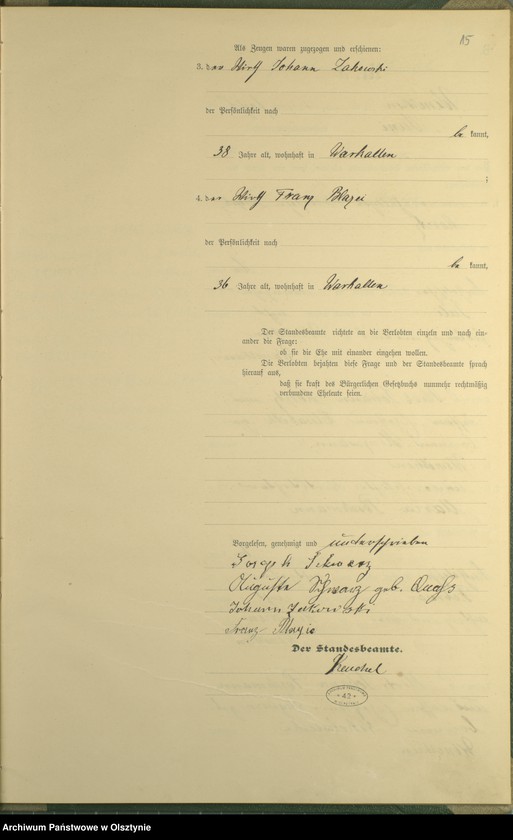 15
Als Zeugen waren zugezogen und erschienen:
3. der Wirth Johann Zakowski
der Persönlichkeit nach
be kannt,
38 Jahre alt, wohnhaft in Warkallen
;
4. der Wirth Franz Blazei
der Persönlichkeit nach
be kannt,
36 Jahre alt, wohnhaft in Warkallen
Der Standesbeamte richtete an die Verlobten einzeln und nach ein-
ander die Frage:
ob sie die Ehe mit einander eingehen wollen.
Die Verlobten bejahten diese Frage und der Standesbeamte sprach
hierauf aus,
daß sie kraft des Bürgerlichen Gesetzbuchs nunmehr rechtmäßig
verbundene Eheleute seien.
Vorgelesen, genehmigt und unterschrieben
Joseph Schwarz
Auguste Schwarz geb. Quass
Johann Zakowski
Franz
Der Standesbeamte.
42
Archiwum Państwowe w Olsztynie